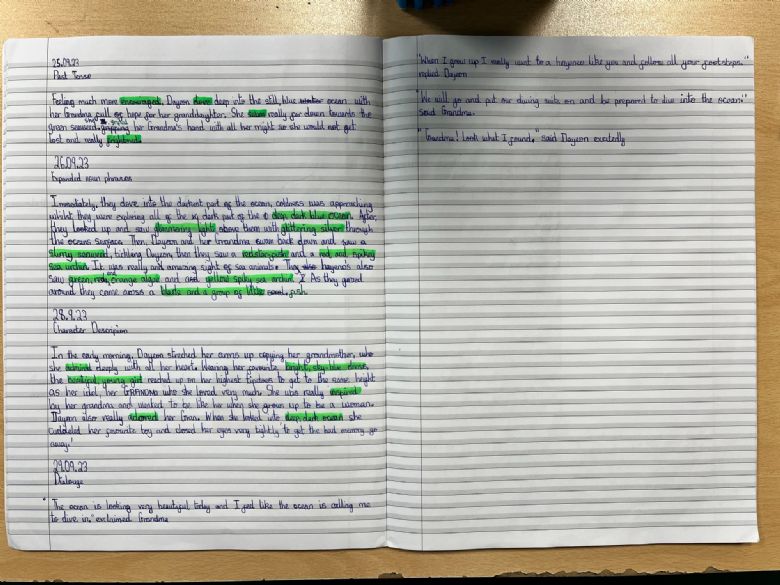 25.09.23
Past Tense
Feeling much more encouraged, Dayeon dove deep into the still, blue ocean with
her Grandma full of hope for her granddaughter. She swam really far down towards the
green seaweed. gripping her Grandma's hand with all her might so she would not get
lost and really frightened.
26.09.23
Expanded noun phrases
Immediately, they dove into the darkest part of the ocean, coldness was approaching
whilst they were exploring all of the dark part of the deep, dark blue ocean. After,
they looked up and saw glimmering lights above them with glittering silver through
the oceans surface. Then Dayeon and her Grandma swam back down and saw a
slimy seaweed, tickling Dayeon then they saw a and a red and spikey
sea urchin. It was really and amazing sight of sea animals. The haenyeo's also
saw green, red, and orange algae and and yellow spiky sea urchin. As they gazed
around they came across a and a group of little fish.
28.9.23
Character Description
In the early morning, Dayeon streched her arms up copying her grandmother, who
she admired deeply with all her heart. Wearing her favourite bright, sky-blue dress,
the beatiful, young girl reached up on her highest tiptoes to get to the same height
as her idol, her GRANDMA who she loved very much. She was really inspired
by her grandma and wanted to be like her when she grows up to be a woman.
Dayeon also really adored her Gran. When she looked into deep, dark ocean, she
cuddeled her favourite toy and closed her eyes very tightly 'to get the bad memory go
away.'
29.09.23
Dialouge
"The ocean is looking very beautiful today and I feel like the ocean is calling me
to dive in." exclaimed Grandma
"When I grow up I really want to a haenyeo like you and follow all your footsteps."
replied Dayeon
"We will go and put our diving suits on and be prepared to dive into the ocean."
said Grandma.
"Grandma! Look what I found." said Dayeon excitedly